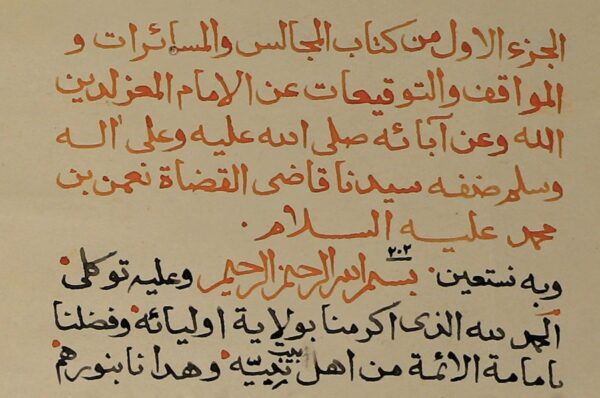 الجزء الاول من كتاب المجالس والمسائرات و
المواقف والتوقيعات عن الامام المعز لدين
الله وعن آبائه صلى الله عليه وعلى اله
وسلم صنفه سيدنا قاضى القضاة نعمن بن
محمد عليه السلام ·
وبه نستعين · بسم الله الرحمن الرحيم وعليه توكلى ·
٢٠٢
الحمد لله الذى اكرمنا بولاية اوليائه · وفضلنا
بامامة الائمة من اهل بيت نبيّه · وهدانا بنورهم